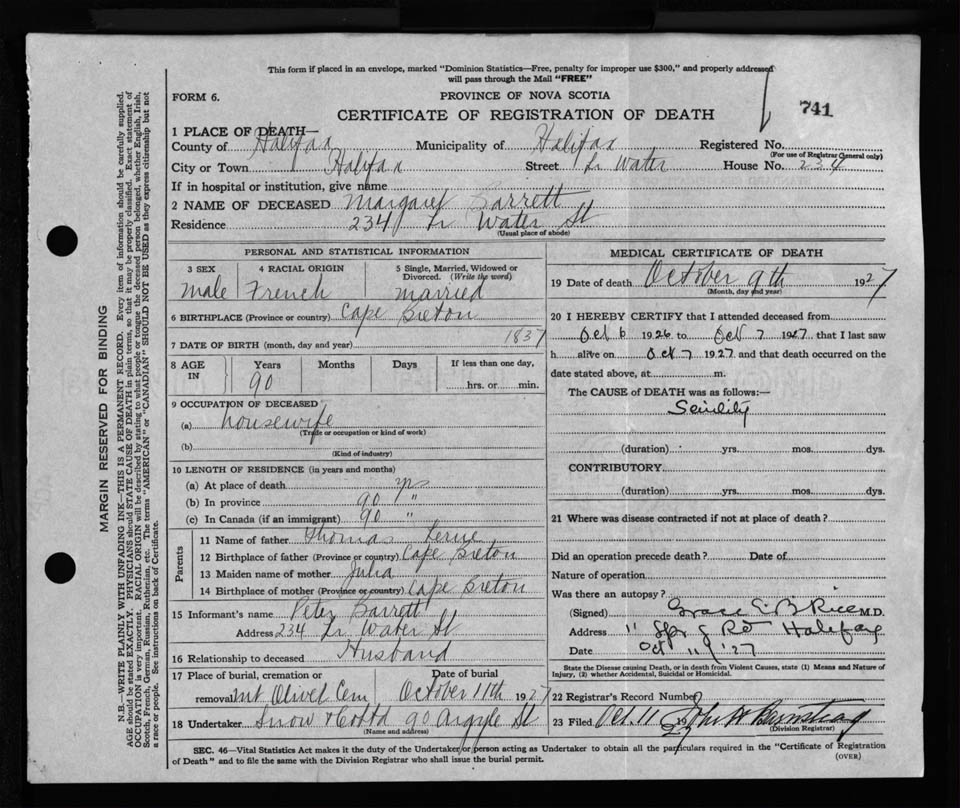 This form if placed in an envelope, marked "Dominion Statistics—Free, penalty for improper use $300," and properly addressed
will pass through the Mail "FREE"
FORM 6.
PROVINCE OF NOVA SCOTIA
CERTIFICATE OF REGISTRATION OF DEATH
741
1 PLACE OF DEATH—
County of Halifax Municipality of Halifax Registered No.
(For use of Registrar General only)
City or Town Halifax Street Lr Water House No. 234
If in hospital or institution, give name
2 NAME OF DECEASED Margaret Barrett
Residence 234 Lr Water St
(Usual place of abode)
PERSONAL AND STATISTICAL INFORMATION
3 SEX 4 RACIAL ORIGIN 5 Single, Married, Widowed or
Divorced. (Write the word)
male French married
6 BIRTHPLACE (Province or country) Cape Breton
7 DATE OF BIRTH (month, day and year) 1837
8 AGE IN Years Months Days If less than one day,
90 hrs. or min.
9 OCCUPATION OF DECEASED
(a) housewife
(Trade or occupation or kind of work)
(b)
(Kind of industry)
10 LENGTH OF RESIDENCE (in years and months)
(a) At place of death yrs
(b) In province 90 "
(c) In Canada (if an immigrant) 90 "
Parents
11 Name of father Thomas
12 Birthplace of father (Province or country) Cape Breton
13 Maiden name of mother Julia
14 Birthplace of mother (Province or country) Cape Breton
15 Informant's name Peter Barrett
Address 234 Lr Water St
16 Relationship to deceased Husband
17 Place of burial, cremation or Date of burial
removal Mt Olivet Cem October 11th 1927
18 Undertaker Snow & Co Ltd 90 Argyle St
(Name and address)
MEDICAL CERTIFICATE OF DEATH
19 Date of death October 9th 1927
(Month, day and year)
20 I HEREBY CERTIFY that I attended deceased from
Oct 6 1926 to Oct 7 1927 that I last saw
h alive on Oct 7 1927 and that death occurred on the
date stated above, at m.
The CAUSE OF DEATH was as follows:
Senility
(duration) yrs. mos. dys.
CONTRIBUTORY
(duration) yrs. mos. dys.
21 Where was disease contracted if not at place of death?
Did an operation precede death? Date of
Nature of operation
Was there an autopsy?
(Signed) Grace E. B. Rice M.D.
Address " Spr g Rd Halifax
Date Oct 11 '27
State the Disease causing Death, or in death from Violent Causes, state (1) Means and Nature of
Injury, (2) whether Accidental, Suicidal or Homicidal.
22 Registrar's Record Number
23 Filed Oct. 11 1927 John H
(Division Registrar)
SEC. 46—Vital Statistics Act makes it the duty of the Undertaker or person acting as Undertaker to obtain all the particulars required in the "Certificate of Registration
of Death" and to file the same with the Division Registrar who shall issue the burial permit.
(OVER)
MARGIN RESERVED FOR BINDING
N.B.—WRITE PLAINLY WITH UNFADING INK—THIS IS A PERMANENT RECORD. Every item of information should be carefully supplied.
AGE should be stated EXACTLY. PHYSICIANS should STATE CAUSE OF DEATH in plain terms, so that it may be properly classified. Exact statement of
OCCUPATION is very important. RACIAL ORIGIN will be described by stating to what people or tongue the deceased person belonged, whether English, Irish,
Scotch, French, German, Russian, Ruthenian, etc. The terms "AMERICAN" or "CANADIAN" SHOULD NOT BE USED as they express citizenship but not
a race or people. See instructions on back of Certificate.